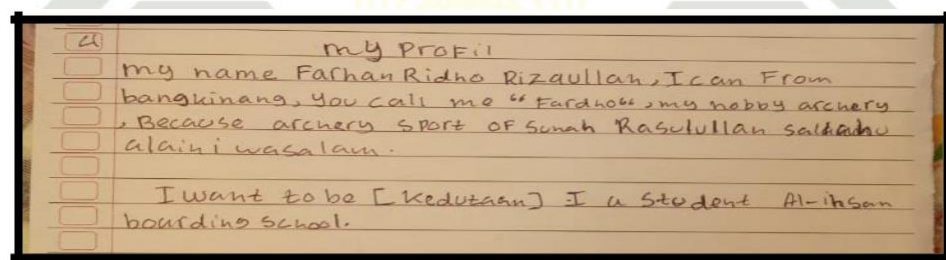 my Profil
my name Farhan Ridho Rizqullah, I can From
bangkinang, you call me "Fardho", my hobby archery
, Because archery sport of Sunah Rasulullah
alaihi wasalam.
I want to be [Kedutaan] I a Student Al-ihsan
bourding school.